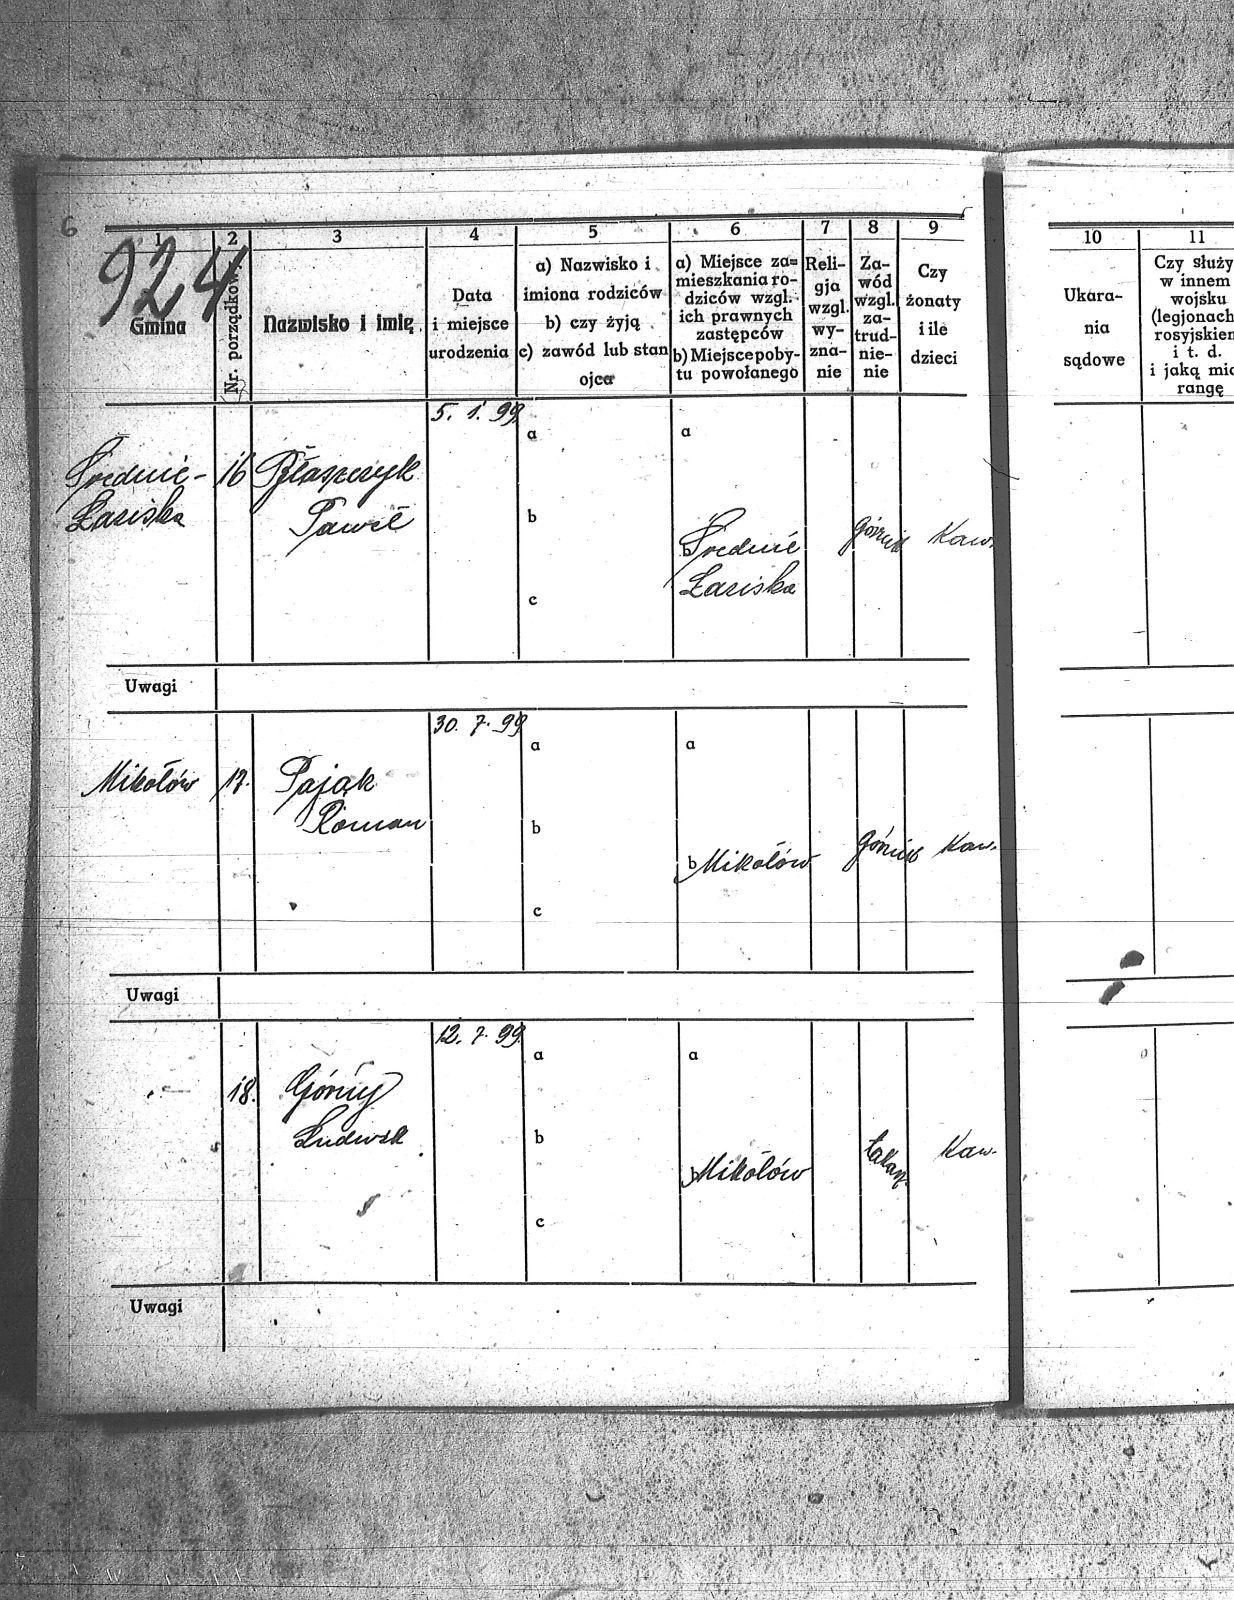 6
924
1
Gmina
2
Nr. porządkow.
3
Nazwisko i imię
4
Data
i miejsce
urodzenia
5
a) Nazwisko i
imiona rodziców
b) czy żyją
c) zawód lub stan
ojca
6
a) Miejsce za=
mieszkania ro-
dziców wzgl.
ich prawnych
zastępców
b) Miejsce poby-
tu powołanego
7
Reli-
gja
wzgl.
wy-
zna-
nie
8
Za-
wód
wzgl.
za-
trud-
nie-
nie
9
Czy
żonaty
i ile
dzieci
10
Ukara-
nia
sądowe
11
Czy służy
w innem
wojsku
(legjonach
rosyjskiem
i t. d.
i jaką mia
rangę
Średnie-
Łaziska
16
Błaszczyk
Paweł
5. 1. 99.
a
b
c
a
b Średnie
Łaziska
Górnik
Kaw.
Uwagi
Mikołów
17.
Pająk
Roman
30. 7. 99
a
b
c
a
b Mikołów
Górnik
Kaw.
Uwagi
18.
Górny
Ludwik
12. 7. 99.
a
b
c
a
b Mikołów
Kaw.
Uwagi